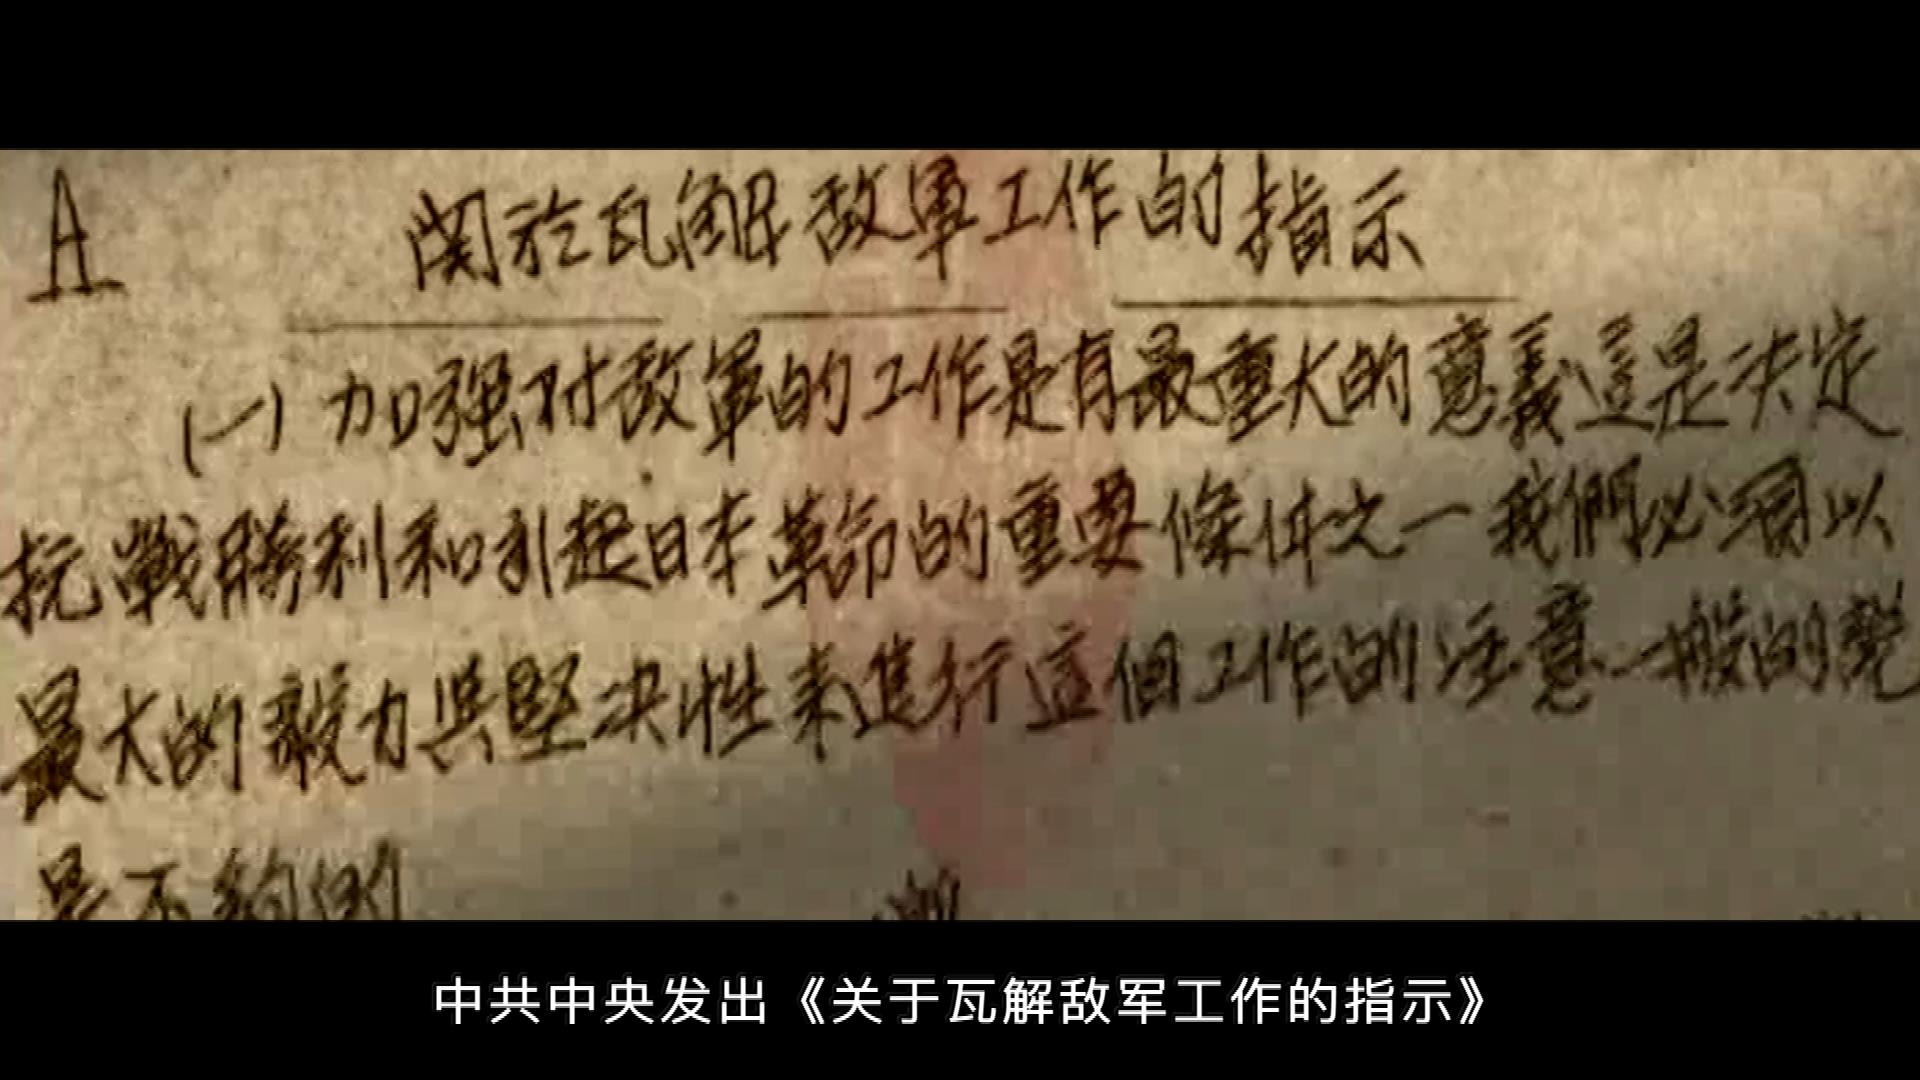 A
関於瓦解敵軍工作的指示
(一)加强对敌軍的工作是有最重大的意義這是决定
抗戰勝利和引起日本革命的重要條件之一我們必須以
最大的毅力與堅决性來進行這個工作的注意一般的說
是不夠的
中共中央发出《关于瓦解敌军工作的指示》